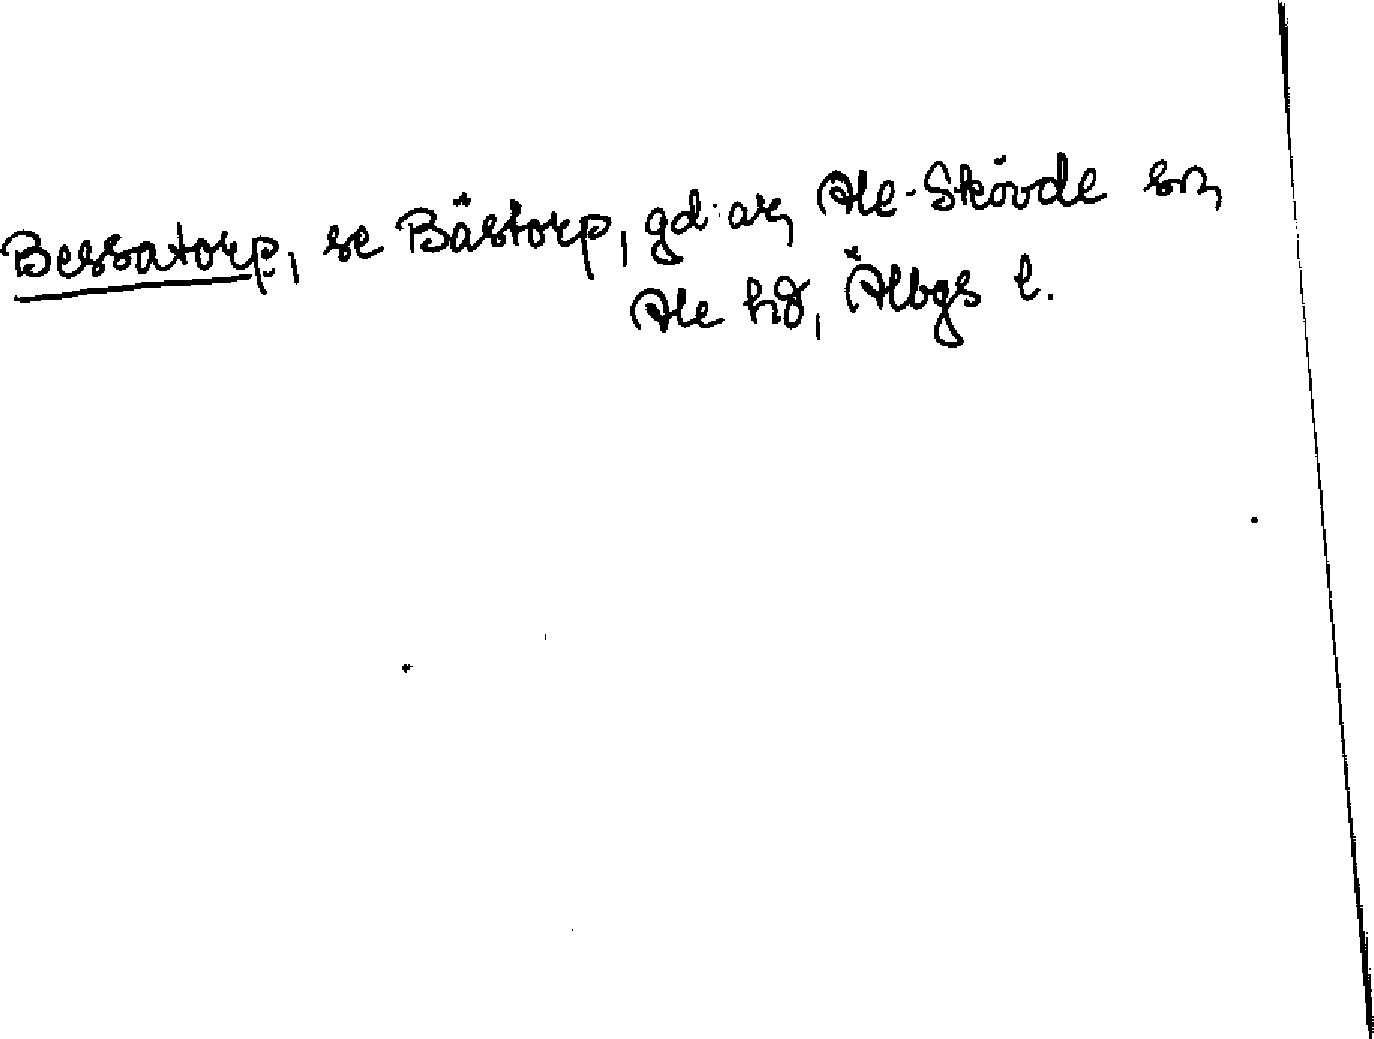 Bessatorp, se Bästorp, gd:ar, Ale-Skövde sn,
Ale hd, Älbgs l.